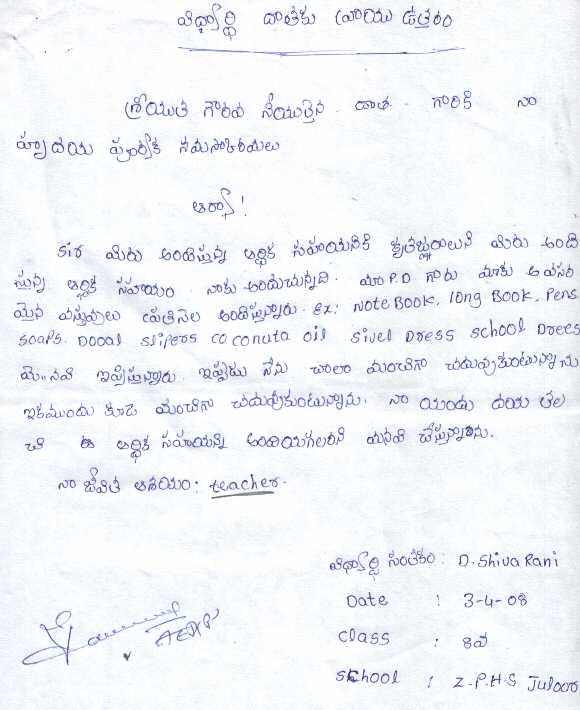 విద్యార్థి దాతకు వ్రాయు ఉత్తరం
శ్రీయుత గౌరవ నీయులైన దాత గారికి నా
హృదయ పూర్వక నమస్కారములు
ఆర్యా!
sir మీరు అందిస్తున్న ఆర్థిక సహాయనికి కృతజ్ఞురాలుని మీరు అంది
స్తున్న ఆర్థిక సహాయం నాకు అందుచున్నది. మా P.D గారు మాకు అవసర
మైన వస్తువులు ప్రతినెల అందిస్తున్నారు. Ex: Note Book, long Book, Pens
soaps. Dooal slipers coconuta oil sivel Dress school Drees
మొ.నవి ఇప్పిస్తున్నారు. ఇప్పుడు నేను చాలా మంచిగా చదువుకుంటున్నాను
ఇకముందు కూడ మంచిగా చదువుకుంటున్నాను. నా యందు దయ తల
చి ఈ ఆర్థిక సహయన్ని అందియగలరని మనవి చేస్తున్నాను.
నా జీవిత ఆశయం: teacher.
విద్యార్థి సంతకం: D. Shiva Rani
Date : 3-4-08
class : 8వ
school : Z.P.H.S Juloor